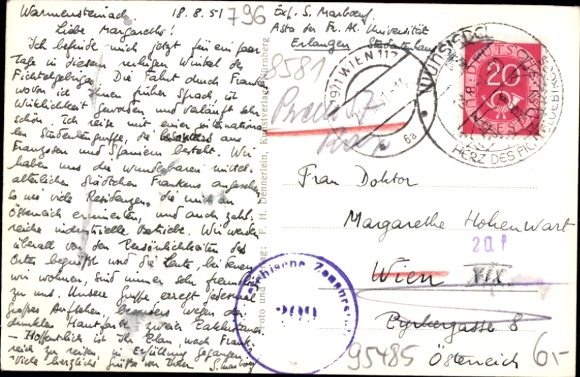 Warmensteinach 18.8.51
Liebe Margarethe!
Ich befinde mich jetzt für ein paar
Tage in diesem ruhigen Winkel des
Fichtelgebirges. Die Fahrt durch Franken
wovon ich Ihnen früher sprach ist
Wirklichkeit geworden und verläuft sehr
schön. Ich reise mit einer internationa-
len Studentengruppe, die aus
Franzosen und Spaniern besteht. Wir
haben uns die wunderbaren mittel-
alterlichen Städtchen Frankens angesehen
so wie viele Residenzen, die mich an
Österreich erinnerten, und auch zahl-
reiche industrielle Betriebe. Wir werden
überall von den Persönlichkeiten des
Ortes begrüßt und die Leute, bei denen
wir wohnen, sind immer sehr freundlich
zu uns. Unsere Gruppe erregt jedesmal
großes Aufsehen, besonders wegen der
dunklen Hautfarbe zweier
– Hoffentlich ist Ihr Plan, nach Frank-
reich zu reisen, in Erfüllung gegangen.
Viele herzliche Grüße von Ihrem S.
796
Exp. S.
Asta der Fr. Al. Universität
Erlangen Studentenhaus
8581
19/1 WIEN 117
6a
WUNSIEDEL
DEUTSCHE BUNDESPOST
20
HERZ DES
Foto und Verlag: F. H. Dennerlein, Kunstverlag, Nürnberg
Frau Doktor
Margarethe Hohenwart
20.
Wien XIX
8
Österreich
Österreichische Zensurstelle
95485
6,-